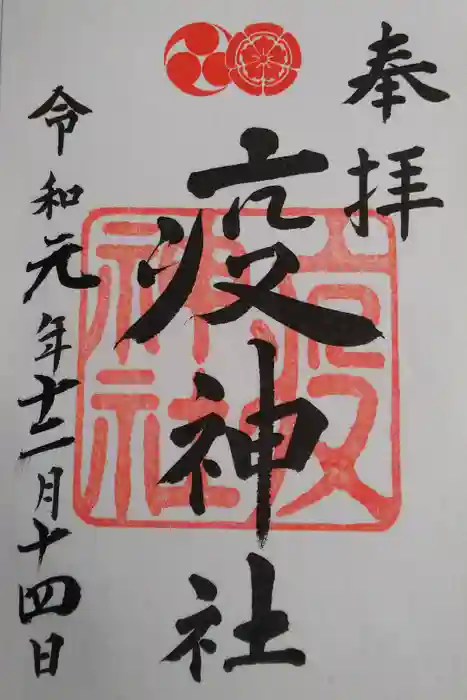 奉拝
疫神社
令和元年十二月十四日